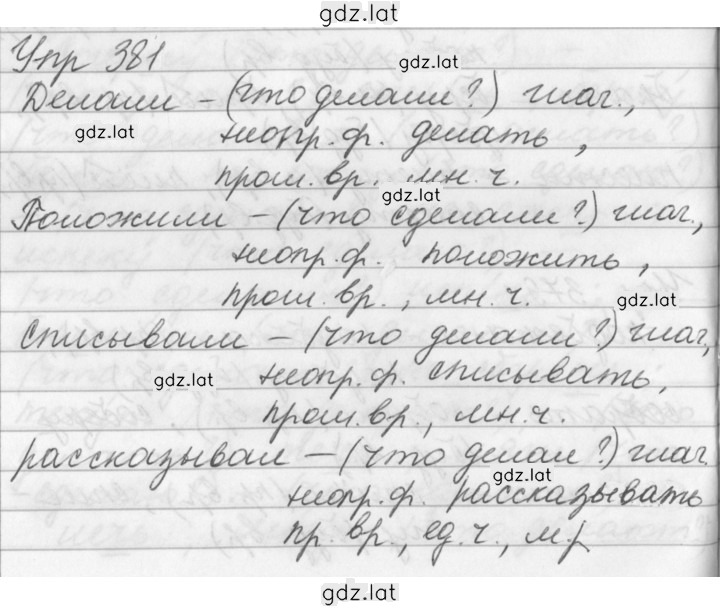 gdz.lat
Упр 381
gdz.lat
Делали – (что делали?) глаг.,
gdz.lat
неопр. ф. делать,
прош. вр., мн. ч.
gdz.lat
Положили – (что сделали?) глаг.,
неопр. ф. положить,
прош. вр., мн. ч.
gdz.lat
списывали – (что делали?) глаг,
gdz.lat
неопр. ф. списывать,
прош. вр., мн. ч.
рассказывал – (что делал?) глаг.
gdz.lat
неопр. ф. рассказывать
пр. вр., ед. ч., м.р
gdz.lat